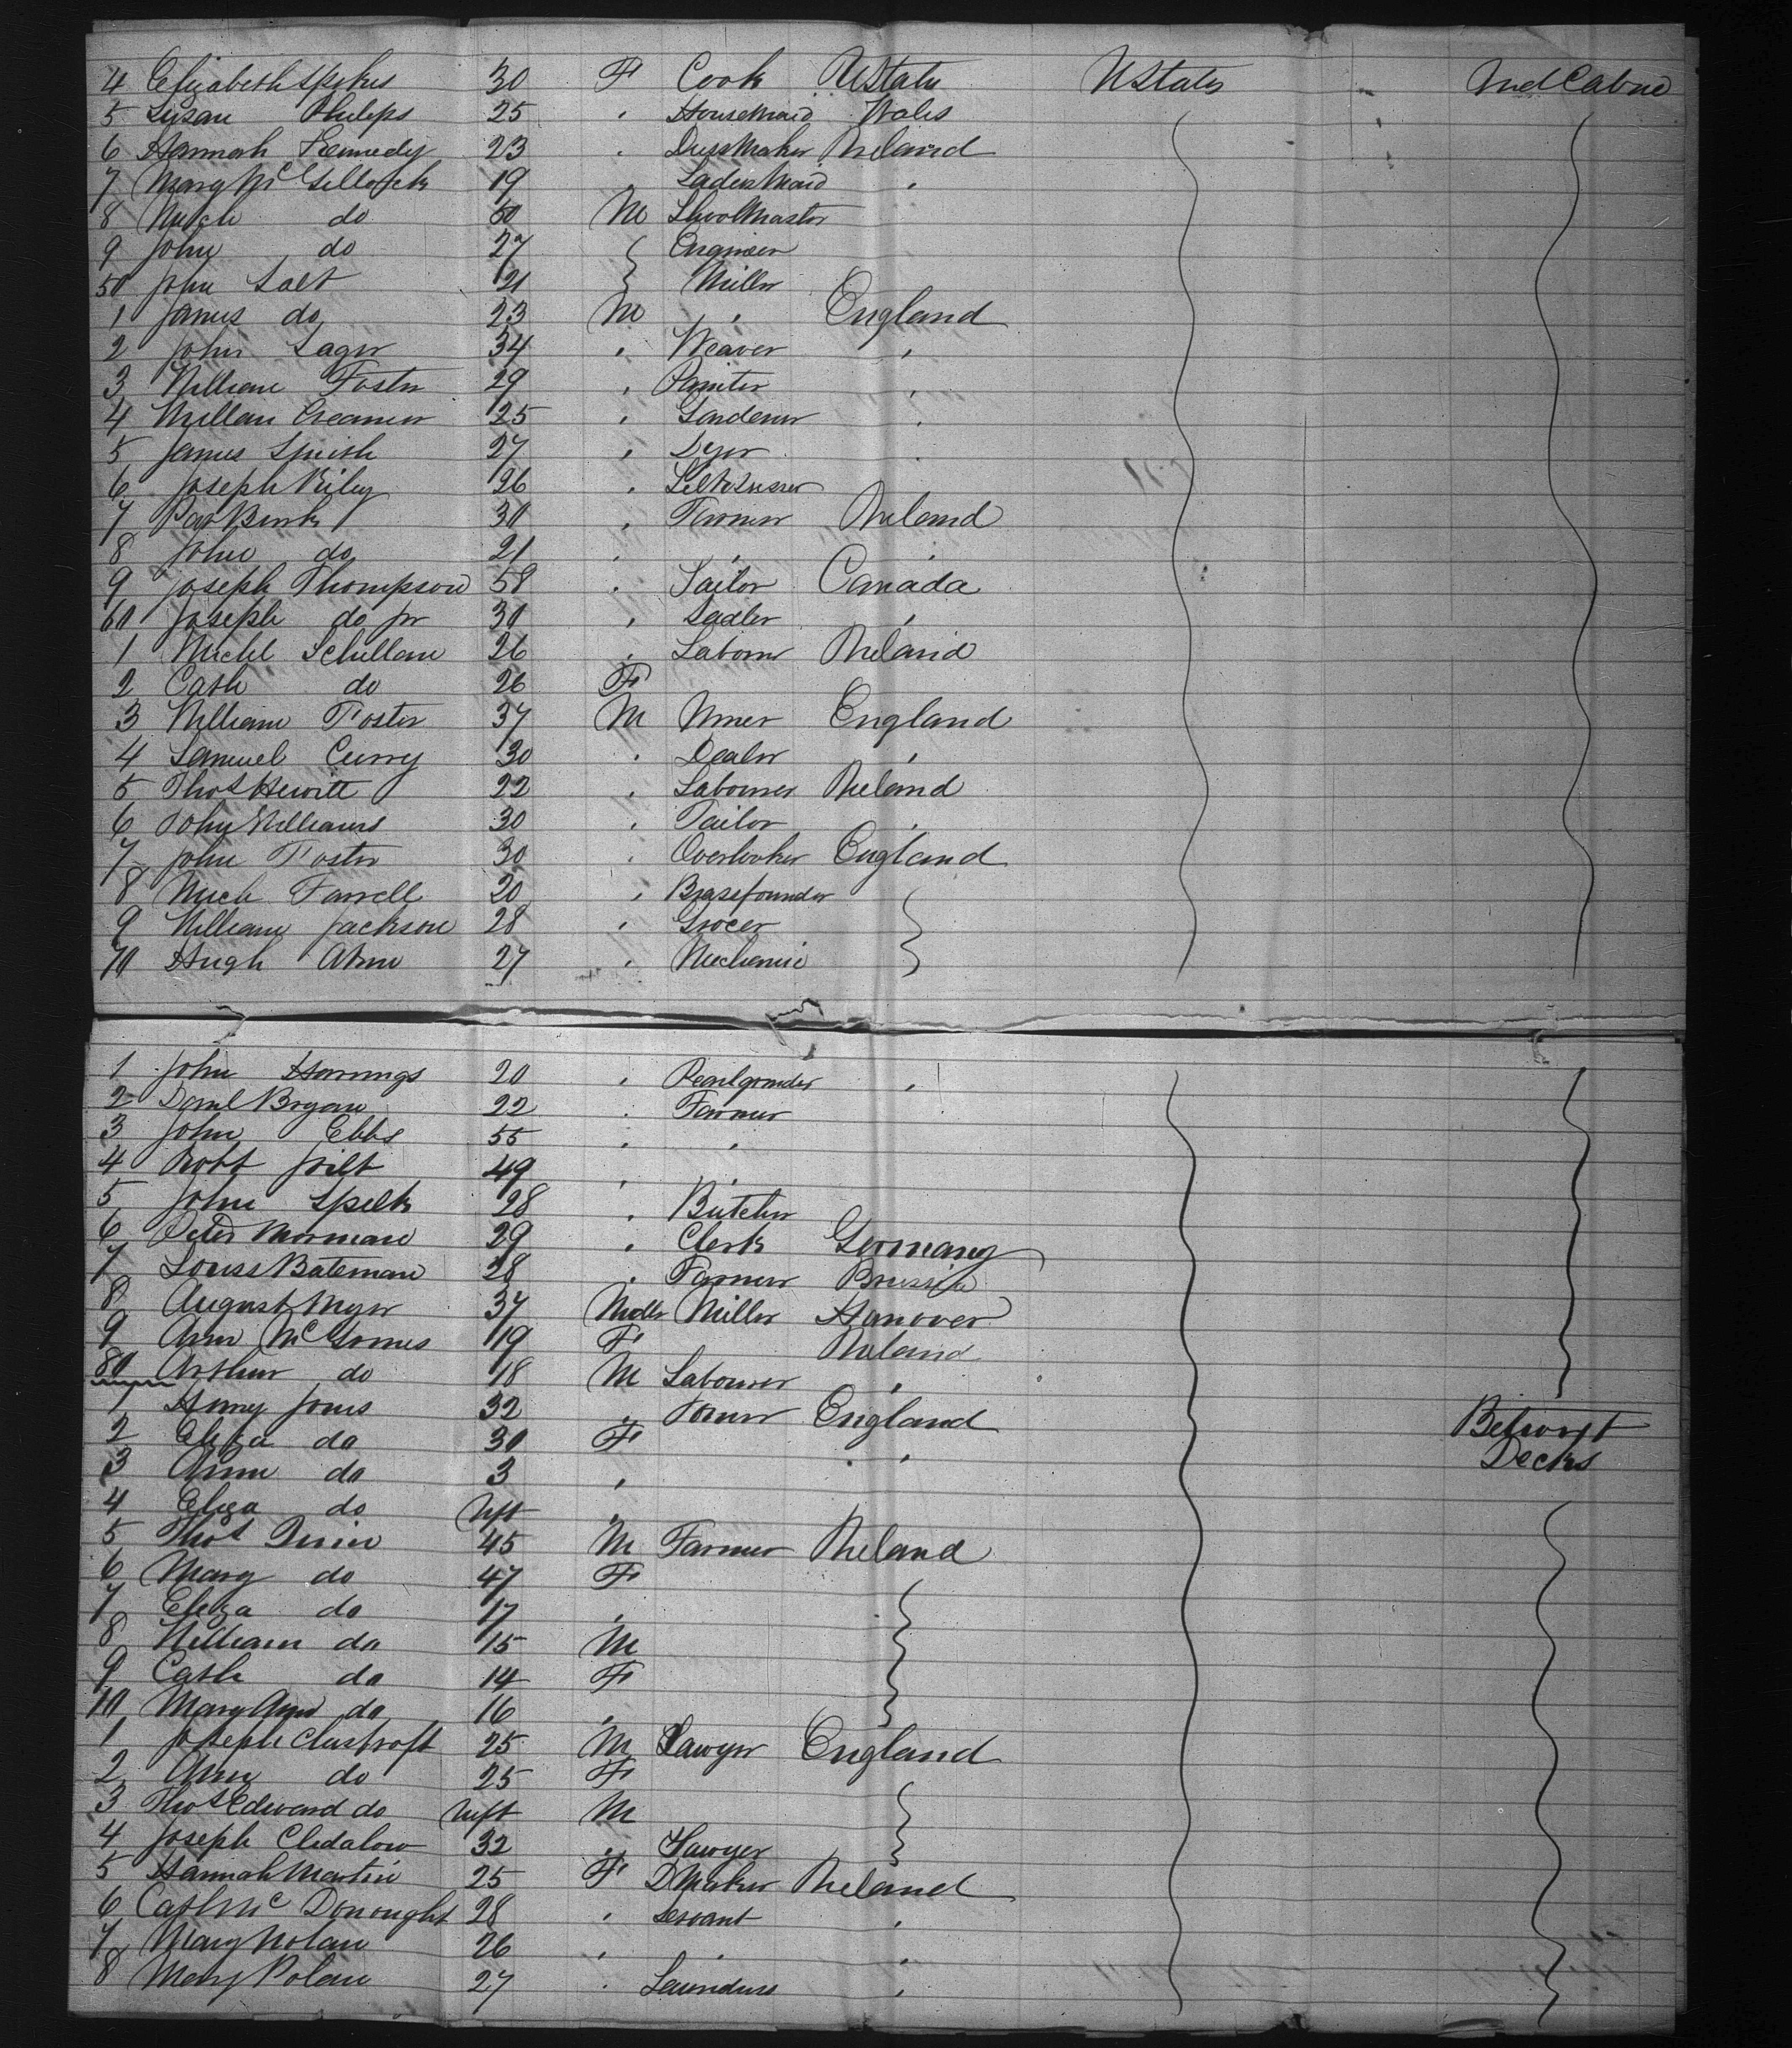 4 Elizabeth Spikes 30 F Cook UStates UStates 2nd Cabine
5 Susan Phileps 25 " Housemaid Wales
6 Hannah Kennedy 23 " DressMaker Ireland
7 Mary McGellock 19 " LadiesMaid "
8 Mich do 60 M
9 John do 27 Engineer
50 John Salt 21 Miller
1 James do 23 M " England
2 John Sager 34 " Weaver "
3 William Foster 29 " Painter "
4 William Creamer 25 " Gardener "
5 James Smith 27 " Dyer "
6 Joseph Riley 26 "
7 Pat Burk 30 " Farmer Ireland
8 John do 21 " " "
9 Joseph Thompson 58 " Sailor Canada
60 Joseph do jr 30 " Sadler "
1 Michl Schullan 26 " Laborer Ireland
2 Cath do 26 F
3 William Foster 37 M England
4 Samuel Curry 30 " Dealer "
5 Thos Hewitt 22 " Labourer Ireland
6 John Williams 30 " Tailor "
7 John Foster 30 " Overlooker England
8 Mich Farrell 20 " Brassfounder
9 William Jackson 28 " Grocer
70 Hugh 27 " Mechanic
1 John Hannngs 20 " Pearlgrinder "
2 Danl Bryan 22 " Farmer
3 John Ebbs 55 " "
4 Robt 49 " "
5 John Spelk 28 " Butcher
6 Peter Morman 29 " Clerk Germany
7 Louis Bateman 28 " Farmer Prussia
8 August Myer 37 Miller Hanover
9 Ann McGornes 19 F Ireland
80 Arthur do 18 M Labourer "
1 Henry Jones 32 " England
2 Eliza do 30 F " " Betwixt
3 Anne do 3 " Decks
4 Eliza do Inft "
5 Thos Quin 45 M Farmer Ireland
6 Mary do 47 F
7 Eliza do 17 "
8 William do 15 M
9 Cath do 14 F
10 Mary Ann do 16 "
1 Joseph 25 M Sawyer England
2 Ann do 25 F
3 Thos Edward do Inft M
4 Joseph Cledalow 32 " Sawyer
5 Hannah Martin 25 F DMaker Ireland
6 Cath McDonought 28 " Servant "
7 Mary Nolan 26 " " "
8 Mary Polan 27 " Laundress "